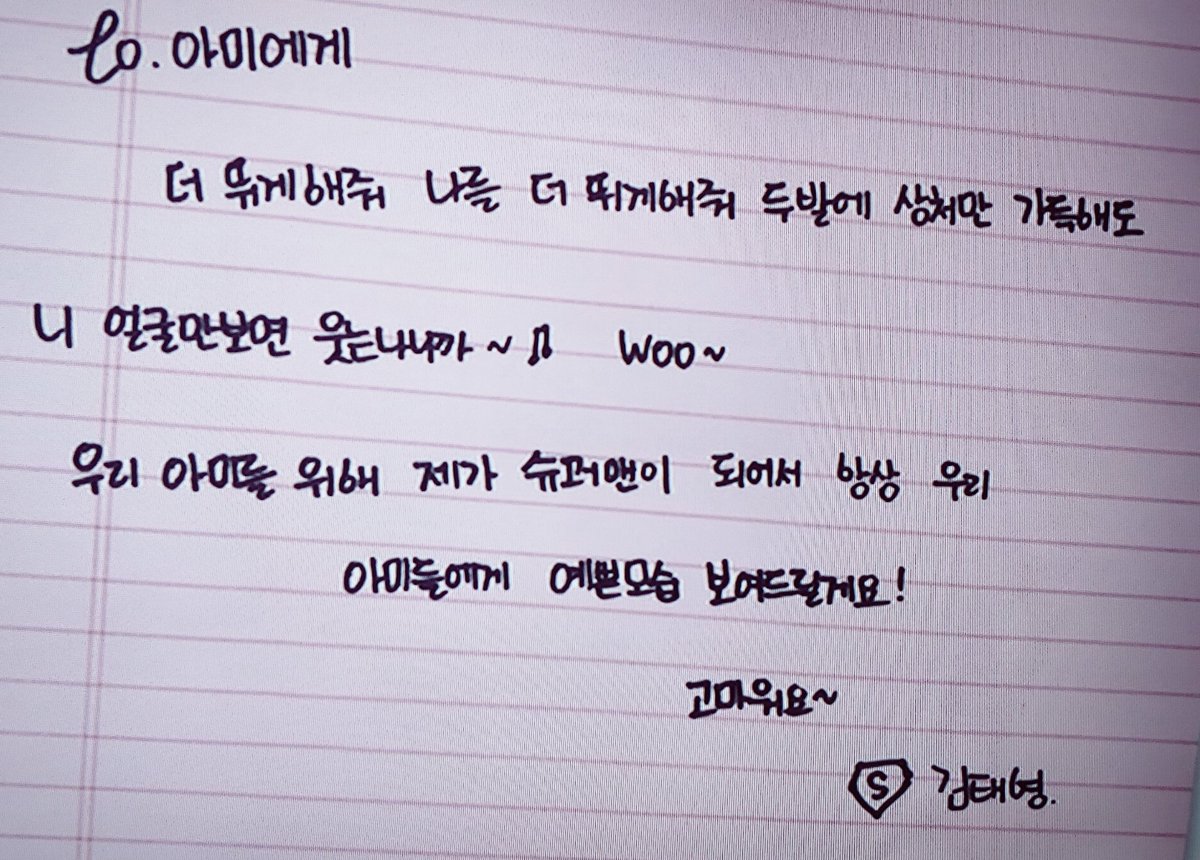 to. 아미에게
더 뛰게해줘 나를 더 뛰게해줘 두발에 상처만 가득해도
니 얼굴만보면 웃는나니까~♫ woo~
우리 아미들 위해 제가 슈퍼맨이 되어서 항상 우리
아미들에게 예쁜모습 보여드릴게요!
고마워요~
S 김태형.